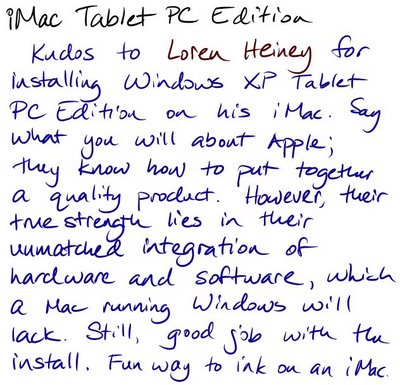 iMac Tablet PC Edition
Kudos to Loren Heiney for
installing Windows XP Tablet
PC Edition on his iMac. Say
what you will about Apple;
they know how to put together
a quality product. However, their
true strength lies in their
unmatched integration of
hardware and software, which
a Mac running Windows will
lack. Still, good job with the
install. Fun way to ink on an iMac.